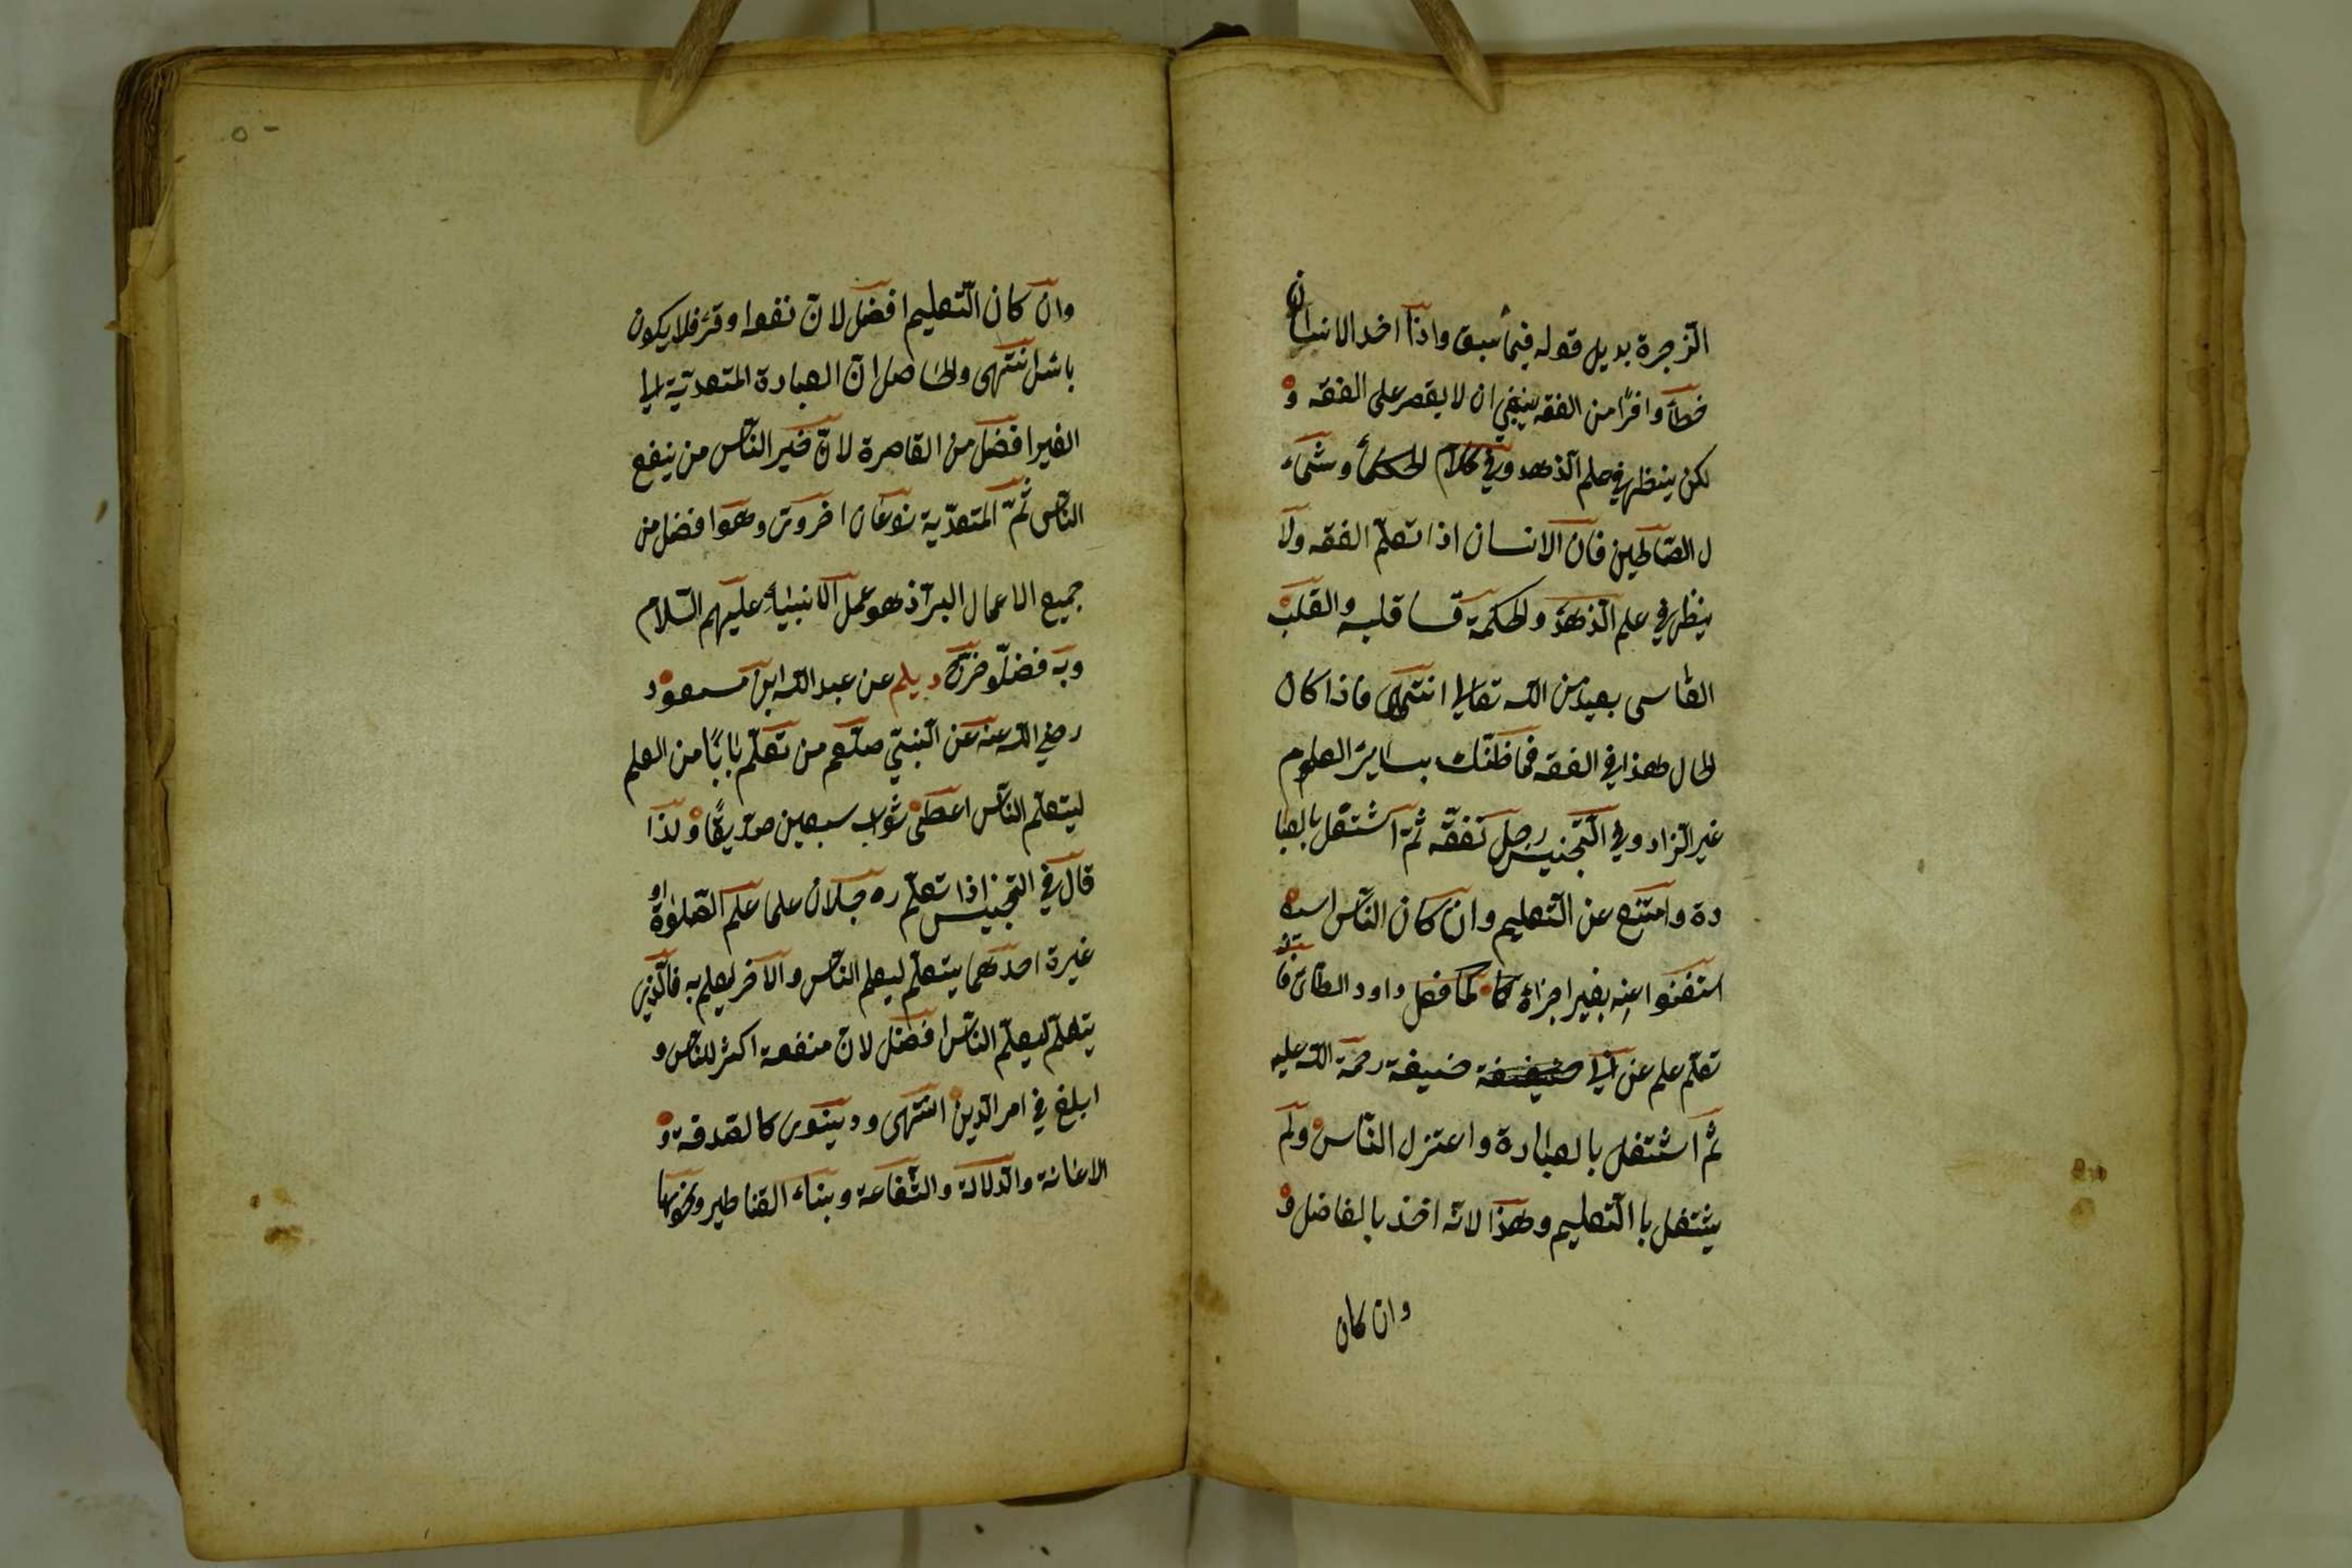 الزجرة بديل قوله فيما سبق واذا اخد الانسان
حظا وافرًا من الفقه ينبغي ان لا يقصر على الفقه و
لكن ينظر في علم الذهد وفي كلام الحكمأ وشماء
ل الصالحين فان الانسان اذا تعلّم الفقه ولا
ينظر في علم الذهد والحكمة قسا قلبه والقلب
القاسى بعيد من الله تعالى انتهى فاذا كان
الحال هذا في الفقه فما ظنّك بساير العلوم
غير الزاد وفي التجنيس رجل تفقّه ثمّ اشتغل بالعبا
دة وامتنع عن التعليم وان كان النّاس
استغنوا عنه بغير اجزاهٔ كما فعل داود الطائ فا
تعلّم علم عن ابى حنيفة رحمة الله عليه
ثم اشتغل بالعبادة واعتزل النّاس ولم
يشتغل با التعليم وهذا لانّه اخذ بالفاضل و
وان كان
٥٠
وان كان التعليم افضل لانّ نفعه اوقر فلا يكون
باس انتهى والحاصل انّ العبادة المتعدّية الى
الغير افضل من القاصرة لانّ خير النّاس من ينفع
النّاس ثمّ المتعدّية نوعان اخروى وهو افضل من
جميع الاعمال البر اذ هو عمل الانبياء عليهم السّلام
وبه فضلّو خرج ديلم عن عبد الله ابن مسعود
رضي الله عنه عن النّبيّ صلعم من تعلّم بابًا من العلم
ليتعلم النّاس اعطى ثواب سبعين صدّيقًا ولذا
قال في التجنيس اذا تعلّم رجلان علما علم الصّلوة او
غيرة احدهما يتعلّم ليعلم النّاس والآخر ليعلم به فالّذى
يتعلّم ليعلّم النّاس افضل لانّ منفعة اكثر للنّاس و
ابلغ في امر الدّين انتهى ودينوى كالصدقة و
الاعانة والدّلالة والشّفاعة وبناء القناطير ونحوها